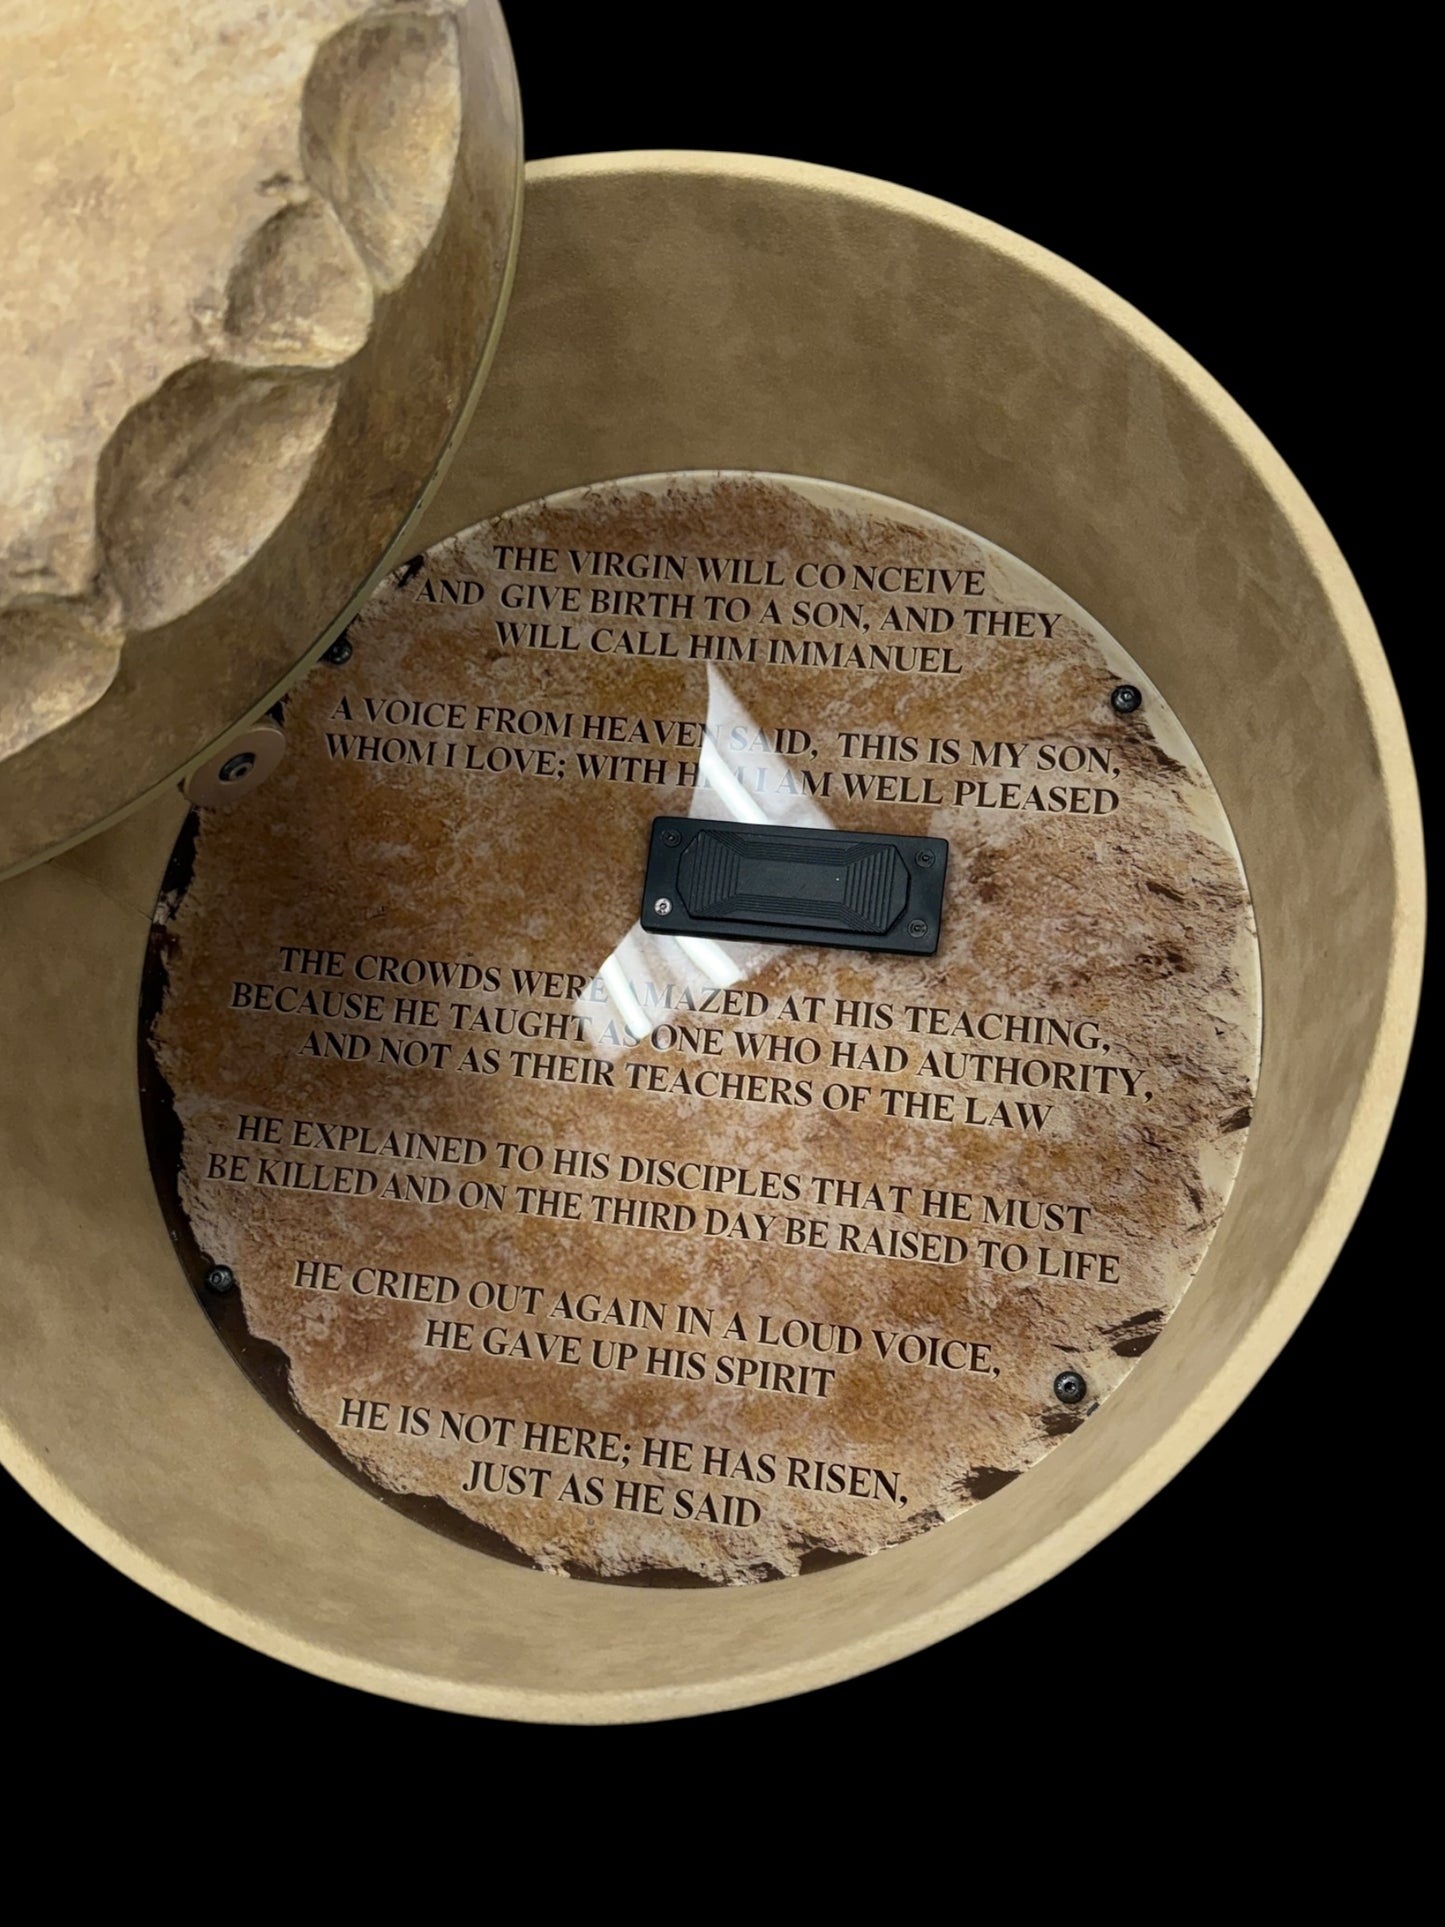 THE VIRGIN WILL CONCEIVE
AND GIVE BIRTH TO A SON, AND THEY
WILL CALL HIM IMMANUEL
A VOICE FROM HEAVEN SAID, THIS IS MY SON,
WHOM I LOVE; WITH HIM I AM WELL PLEASED
THE CROWDS WERE AMAZED AT HIS TEACHING,
BECAUSE HE TAUGHT AS ONE WHO HAD AUTHORITY,
AND NOT AS THEIR TEACHERS OF THE LAW
HE EXPLAINED TO HIS DISCIPLES THAT HE MUST
BE KILLED AND ON THE THIRD DAY BE RAISED TO LIFE
HE CRIED OUT AGAIN IN A LOUD VOICE,
HE GAVE UP HIS SPIRIT
HE IS NOT HERE; HE HAS RISEN,
JUST AS HE SAID